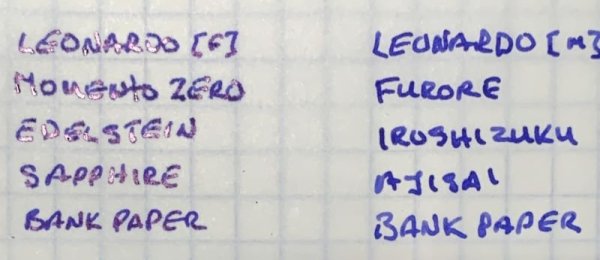 LEONARDO [F]
MOMENTO ZERO
EDELSTEIN
SAPPHIRE
BANK PAPER
LEONARDO [M]
FURORE
IROSHIZUKU
AJISAI
BANK PAPER